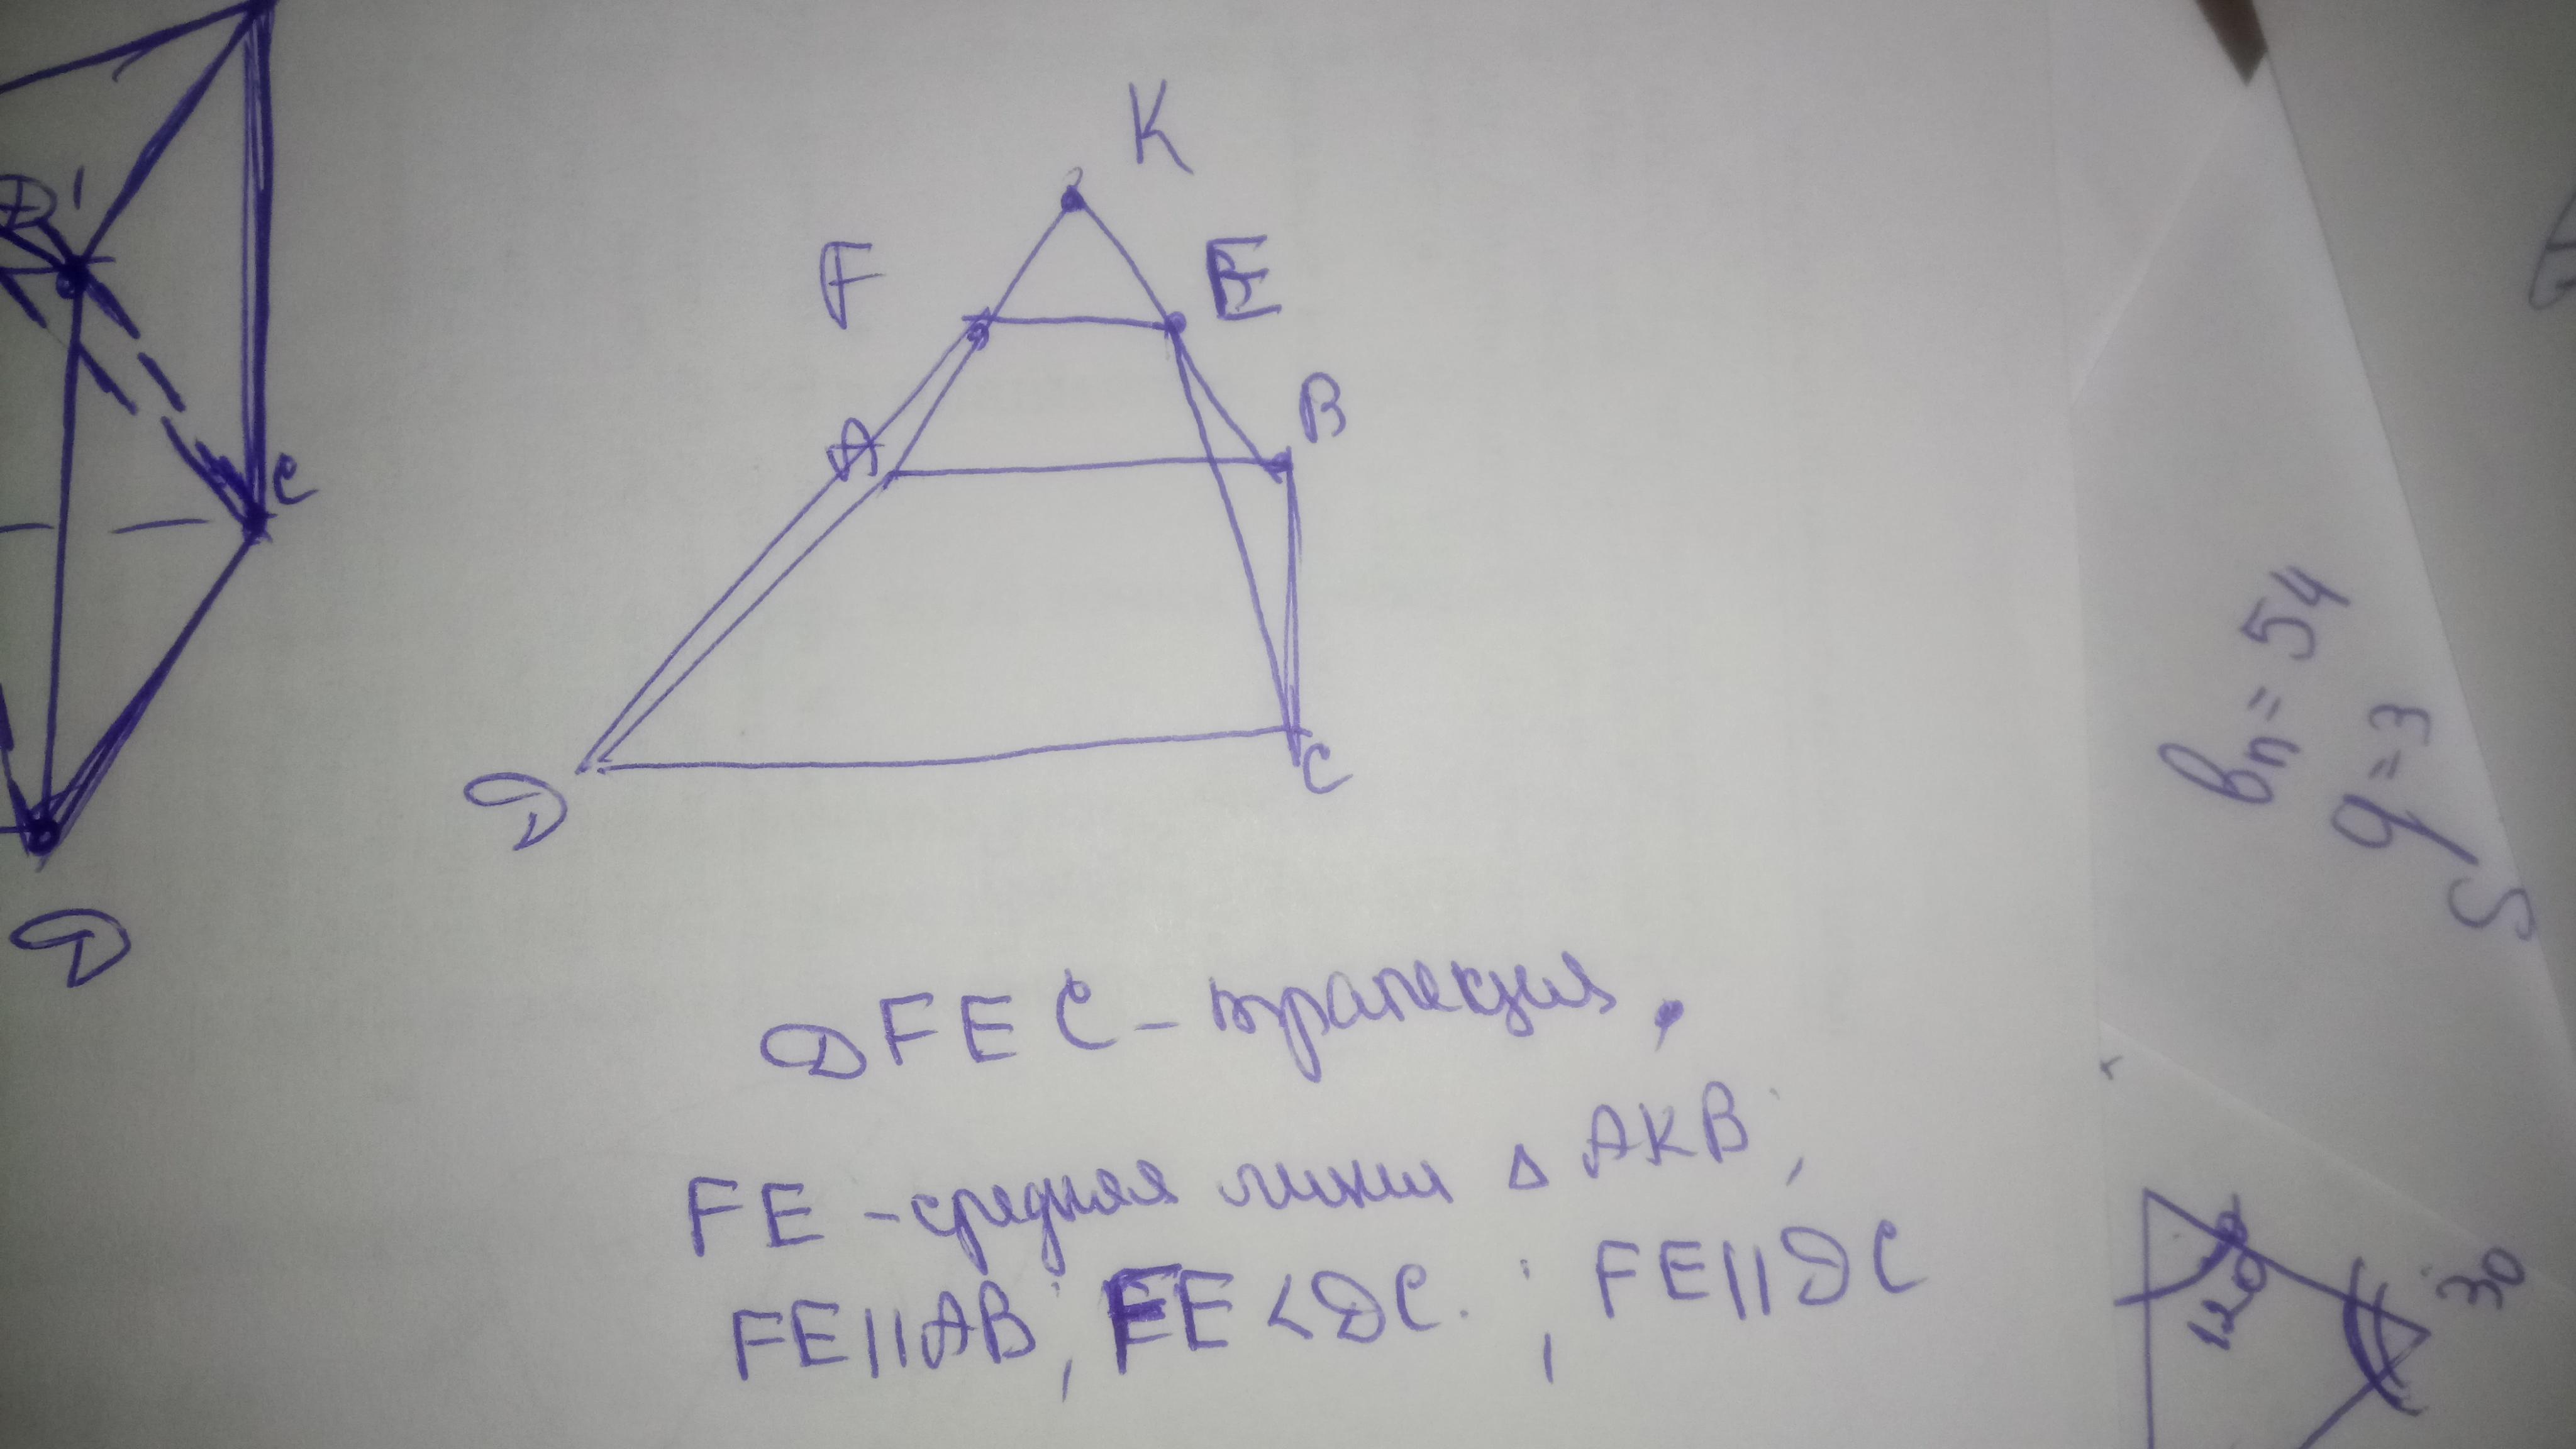 K
F
E
A
B
D
C
D'
C
D
DFEC - трапеция.
FE - средняя линия Δ AKB;
FE || AB; FE < DC.; FE || DC
bn = 54
q = 3
S
120
30